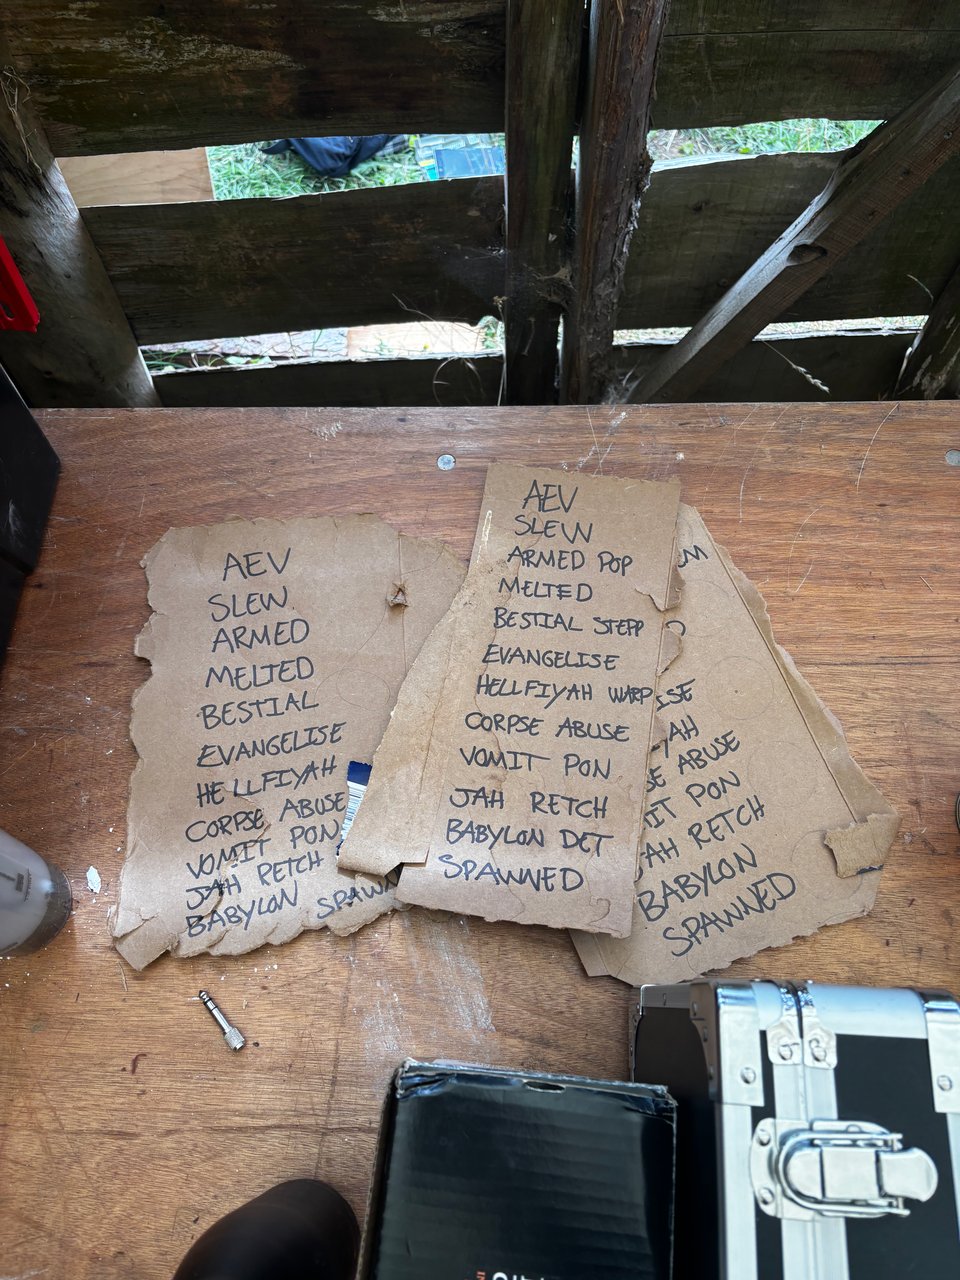 AEV
SLEW
ARMED
MELTED
BESTIAL
EVANGELISE
HELLFIYAH
CORPSE ABUSE
VOMIT PON
JAH RETCH
BABYLON SPAWN
AEV
SLEW
ARMED POP
MELTED
BESTIAL STEPP
EVANGELISE
HELLFIYAH WARP
CORPSE ABUSE
VOMIT PON
JAH RETCH
BABYLON DET
SPAWNED
ISE
YAH
SE ABUSE
MIT PON
JAH RETCH
BABYLON
SPAWNED